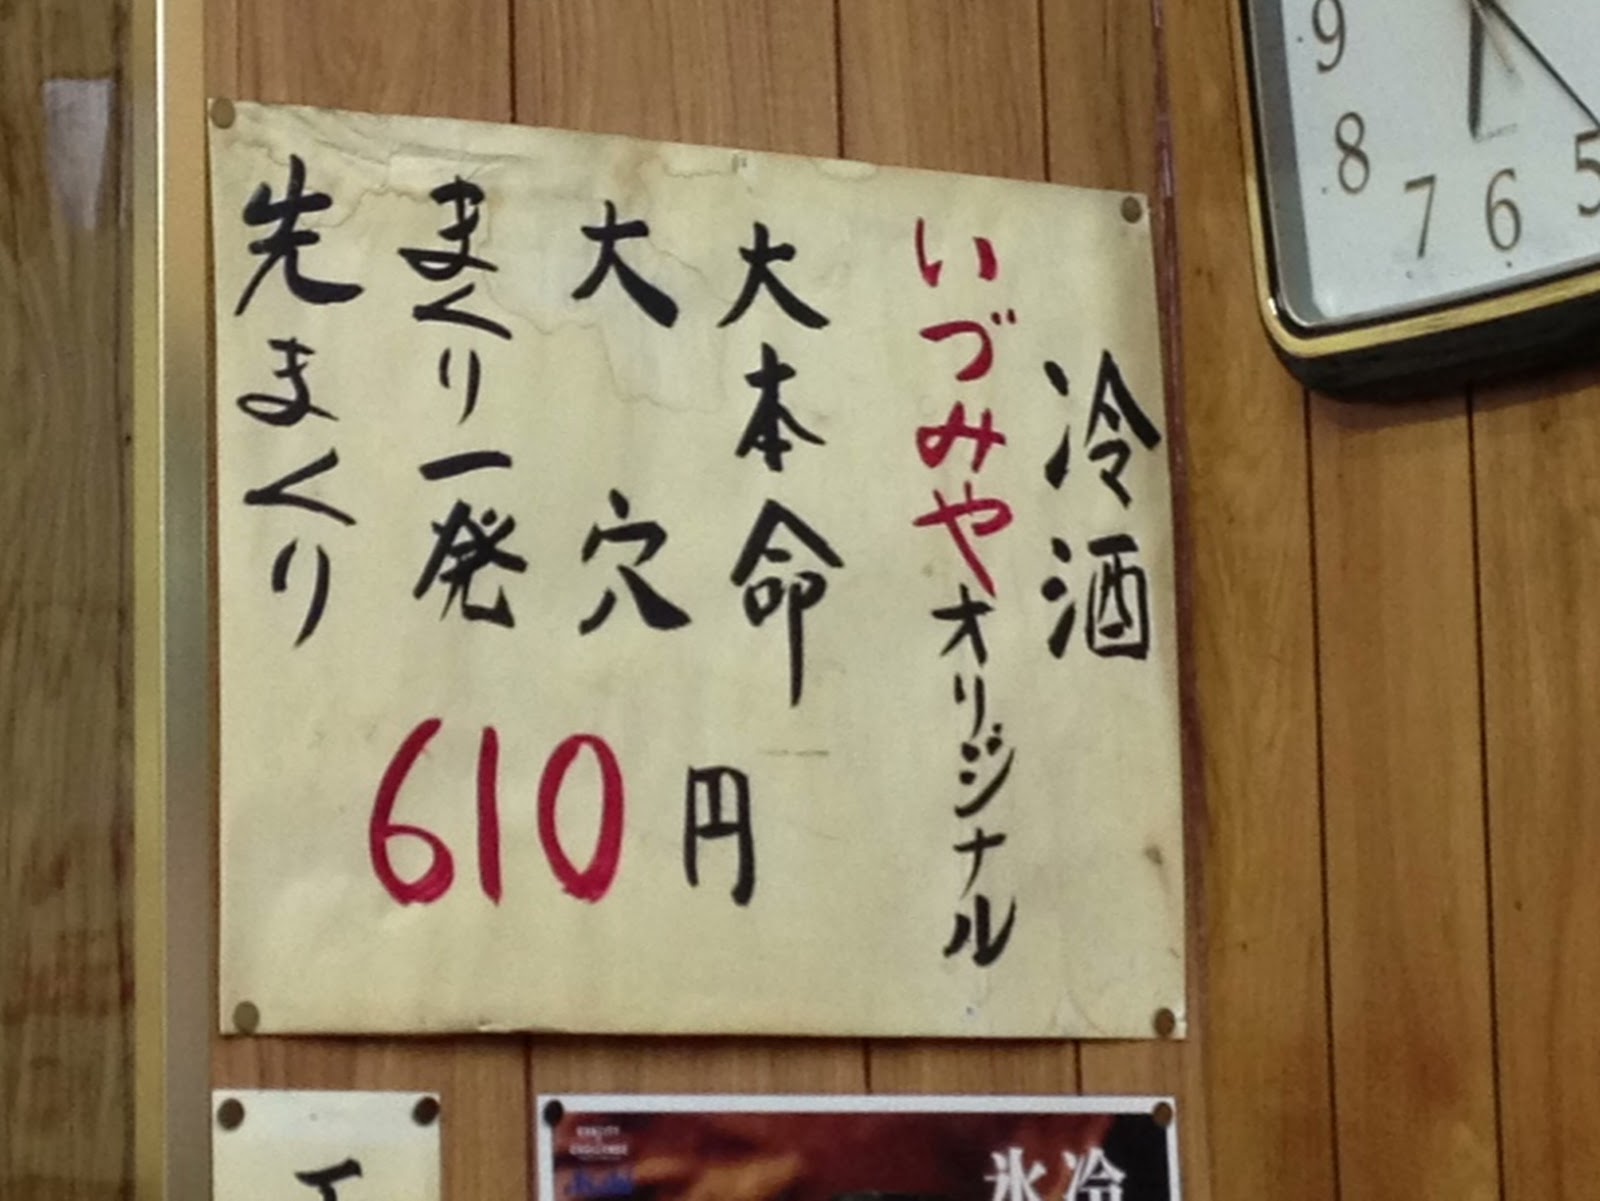 冷酒
いづみやオリジナル
大本命
大穴
まくり一発
先まくり
610円
9
8
7
6
5
氷冷